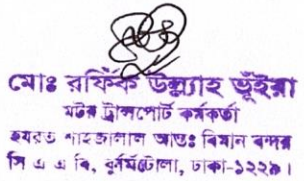 মোঃ রফিক উল্ল্যাহ ভূঁইয়া
মটর ট্রান্সপোর্ট কর্মকর্তা
হযরত শাহজালাল আন্তঃ বিমান বন্দর
সি এ এ বি, কুর্মিটোলা, ঢাকা-১২২৯।